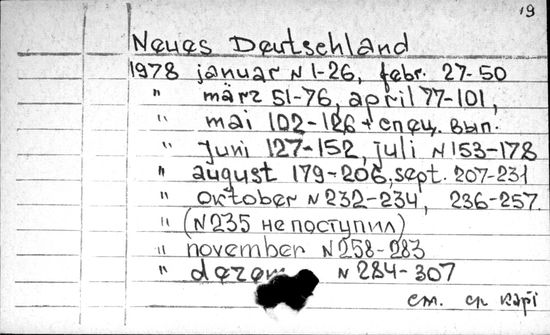 19
Neues Deutschland
1978 januar N 1-26, febr. 27-50
" märz 51-76, april 77-101,
" mai 102-126 + спец. вып.
" juni 127-152, juli N 153-178
" august 179-206, sept. 207-231
" oktober N 232-234, 236-257
" (N 235 не поступил)
" november N 258-283
" N 284-307
см. ср